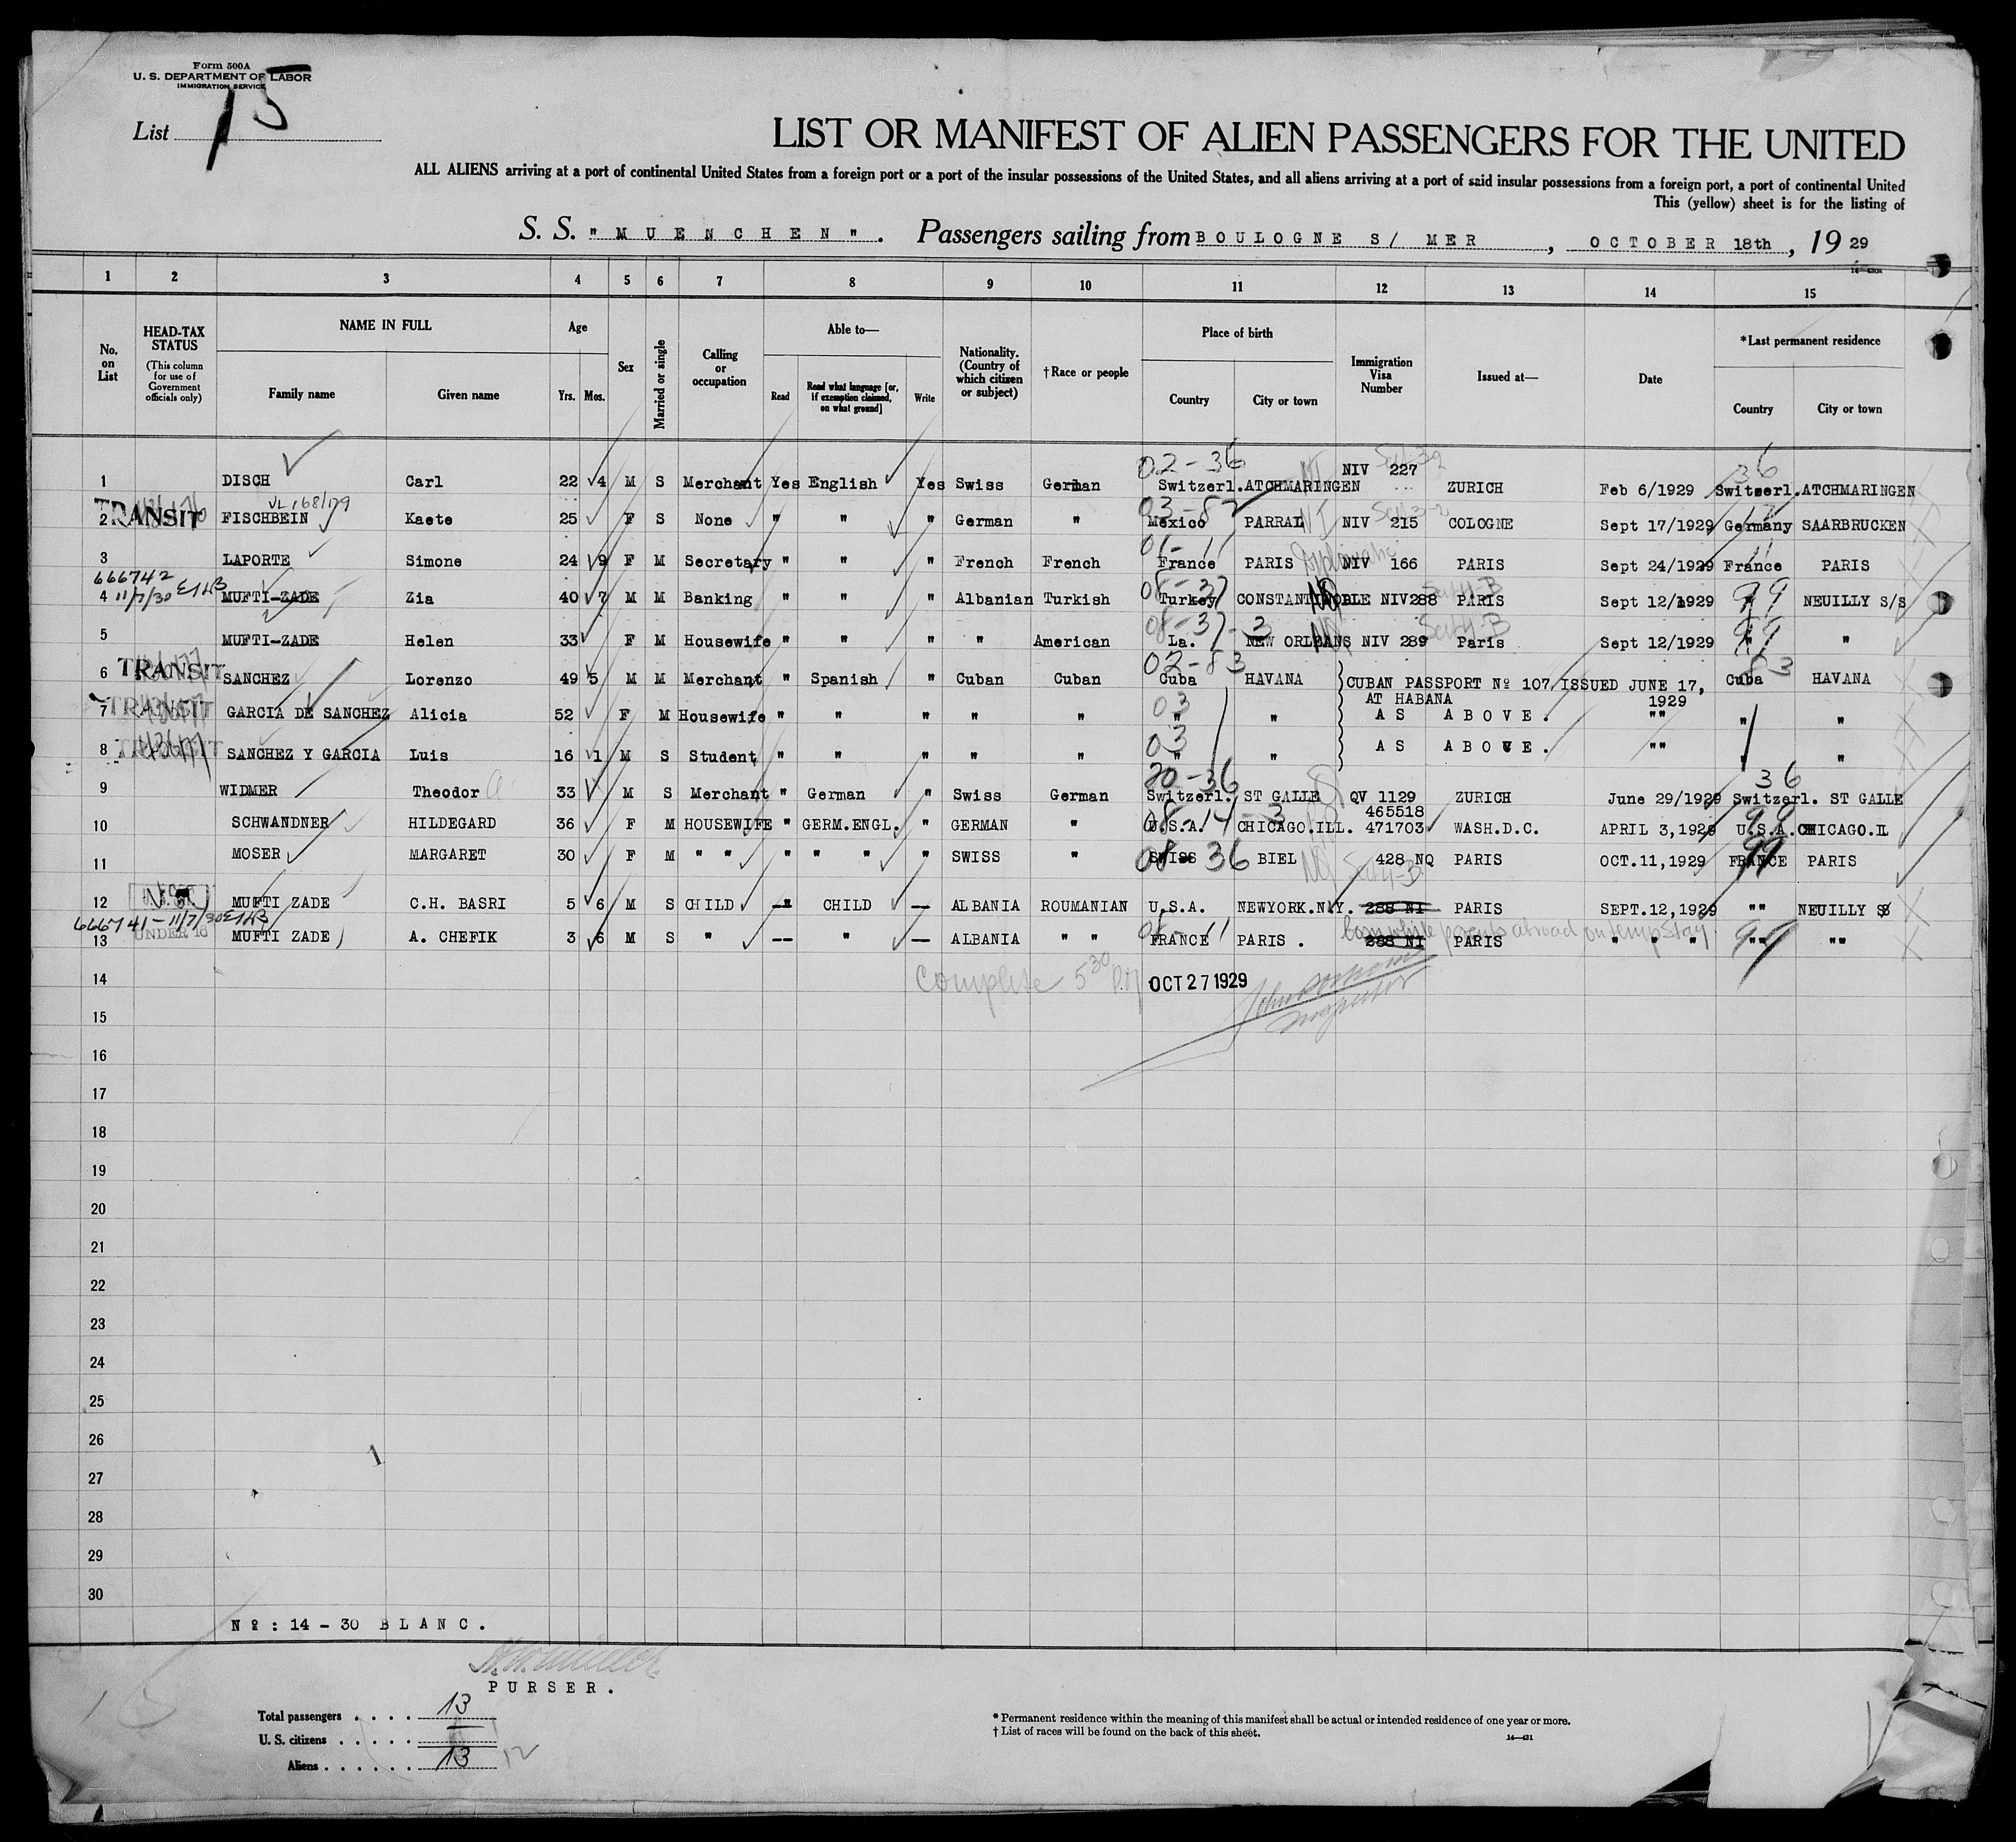 Form 500A
U. S. DEPARTMENT OF LABOR
IMMIGRATION SERVICE
List 15
LIST OR MANIFEST OF ALIEN PASSENGERS FOR THE UNITED
ALL ALIENS arriving at a port of continental United States from a foreign port or a port of the insular possessions of the United States, and all aliens arriving at a port of said insular possessions from a foreign port, a port of continental United
This (yellow) sheet is for the listing of
S. S. "MUENCHEN". Passengers sailing from BOULOGNE S/ MER, OCTOBER 18th, 19 29
1 2 3 4 5 6 7 8 9 10 11 12 13 14 15
No. on List
HEAD-TAX STATUS
(This column for use of Government officials only)
NAME IN FULL
Family name Given name
Age
Yrs. Mos.
Sex
Married or single
Calling or occupation
Able to—
Read
Read what language [or, if exemption claimed, on what ground]
Write
Nationality. (Country of which citizen or subject)
† Race or people
Place of birth
Country City or town
Immigration Visa Number
Issued at—
Date
*Last permanent residence
Country City or town
02-36 36
1 DISCH Carl 22 4 M S Merchant Yes English Yes Swiss German Switzerl. ATCHMARINGEN NIV 227 ZURICH Feb 6/1929 Switserl. ATCHMARINGEN
VL 168/179
03-82
2 TRANSIT FISCHBEIN Kaete 25 F S None " " " German " Mexico PARRAL NIV 215 COLOGNE Sept 17/1929 Germany SAARBRUCKEN
01-11
3 LAPORTE Simone 24 9 F M Secretary " " " French French France PARIS NIV 166 PARIS Sept 24/1929 France PARIS
666742
11/7/30
08-37 99
4 MUFTI-ZADE Zia 40 7 M M Banking " " " Albanian Turkish Turkey CONSTANTINOBLE NIV288 PARIS Sept 12/1929 " NEUILLY S/S
08-37-3 99
5 MUFTI-ZADE Helen 33 F M Housewife " " " " American La. NEW ORLEANS NIV 289 Paris Sept 12/1929 " "
02-83 83
6 TRANSIT SANCHEZ Lorenzo 49 5 M M Merchant " Spanish " Cuban Cuban Cuba HAVANA CUBAN PASSPORT Nº 107 ISSUED JUNE 17, 1929 AT HABANA Cuba HAVANA
03
7 TRANSIT GARCIA DE SANCHEZ Alicia 52 F M Housewife " " " " " " " AS ABOVE. "" " "
03
8 TRANSIT SANCHEZ Y GARCIA Luis 16 1 M S Student " " " " " " " AS ABOVE. "" " "
20-36 36
9 WIDMER Theodor 33 M S Merchant " German " Swiss German Switzerl. ST GALLE QV 1129 ZURICH June 29/1929 Switzerl. ST GALLE
08-14-3 465518 99
10 SCHWANDNER HILDEGARD 36 F M HOUSEWIFE " GERM.ENGL. " GERMAN " U.S.A. CHICAGO.ILL. 471703 WASH.D.C. APRIL 3,1929 U.S.A. CHICAGO.IL
08 36 99
11 MOSER MARGARET 30 F M " " " " " " SWISS " SWISS BIEL 428 NQ PARIS OCT.11,1929 FRANCE PARIS
12 MUFTI ZADE C.H. BASRI 5 6 M S CHILD — CHILD — ALBANIA ROUMANIAN U.S.A. NEWYORK.N.Y. 288 NI PARIS SEPT.12,1929 "" NEUILLY S/S
666741 - 11/7/30
UNDER 16
13 MUFTI ZADE A. CHEFIK 3 6 M S " -- " — ALBANIA " " FRANCE PARIS . 288 NI PARIS " " " "" ""
Born while parents abroad on temp stay
99
14 Complete 5 30 PM OCT 27 1929
Inspector
15
16
17
18
19
20
21
22
23
24
25
26
27
28
29
30
Nº: 14 - 30 BLANC.
PURSER.
Total passengers . . . . 13
U. S. citizens . . . . .
Aliens . . . . . . 13 12
* Permanent residence within the meaning of this manifest shall be actual or intended residence of one year or more.
† List of races will be found on the back of this sheet.
14—431